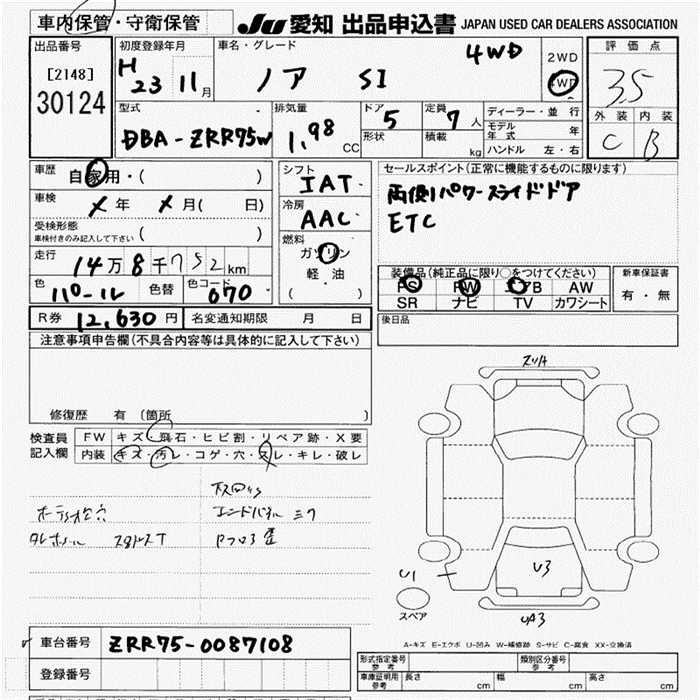 車内保管・守衛保管
JU 愛知 出品申込書 JAPAN USED CAR DEALERS ASSOCIATION
出品番号
[2148]
30124
初度登録年月
H 23 11月
車名・グレード
ノア SI 4WD
2WD
4WD
評価点
3.5
外装 内装
C B
型式
DBA-ZRR75W
排気量
1.98 CC
ドア 5
形状
定員 7 人
積載 kg
ディーラー・並行
モデル年式 年
ハンドル 左・右
車歴 自家用・( )
車検 メ年 メ月( 日)
受検形態
車検付きのみ記入して下さい ( )
走行 14万8千752km
色 パール 色替 色コード 070
シフト
IAT
冷房
AAC
燃料
ガソリン
軽油
( )
セールスポイント(正常に機能するものに限ります)
両側パワースライドドア
ETC
装備品(純正品に限り○をつけてください)
PS PW エアB AW
SR ナビ TV カワシート
新車保証書
有・無
R券 12,630円 名変通知期限 月 日
後日品
注意事項申告欄(不具合内容等は具体的に記入して下さい)
修復歴 有 (箇所 )
検査員
記入欄
FW キズ・飛石・ヒビ割・リペア跡・X要
内装 キズ・汚レ・コゲ・穴・スレ・キレ・破レ
エンドパネル
U1
U3
UA3
スペア
A-キズ E-エクボ U-凹み W-補修跡 S-サビ C-腐食 XX-交換済
車台番号 ZRR75-0087108
登録番号
形式指定番号
参考
類別区分番号
参考
車庫証明用
参考
長さ cm 幅 cm 高さ cm